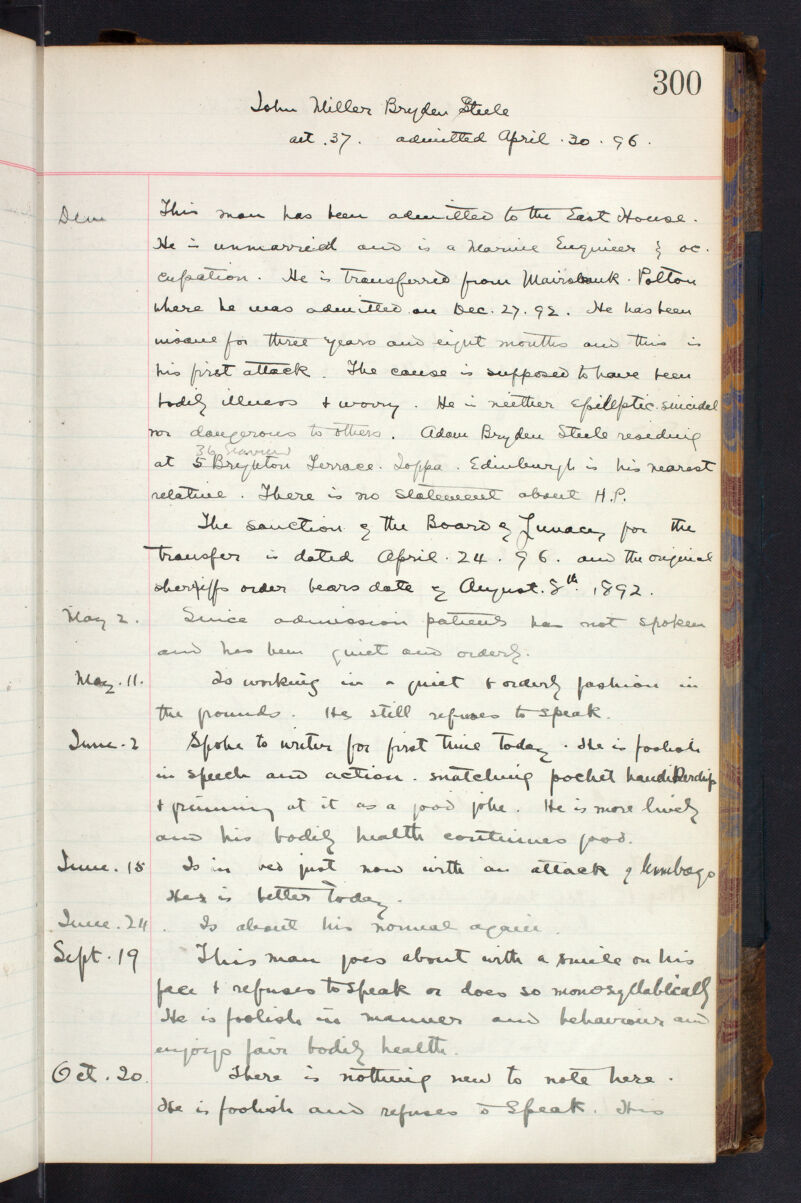 300
John Miller Bryden Steele
aet. 37. admitted April. 30. 96.
Dem This man has been admitted to the East House.
He is unmarried and is a Marine Engineer by oc.
cupation. He is transferred from Mavisbank. Polton
where he was admitted on Dec. 27. 92. He has been
insane for three years and eight months and this is
his first attack. The cause is supposed to have been
bodily illness & worry. He is neither epilleptic. suicidal
nor dangerous to others. Adam Bryden Steele residing
36
at 5 Brighton Terrace. Joppa. Edinburgh is his nearest
relative. There is no statement about H.P.
The sanction of the Board of Lunacy for the
transfer is dated April. 24. 96. and the original
sheriffs order bears date of August. 8th. 1892.
May 2. Since admission patient has not spoken
and has been quiet and orderly.
May. 11. Is working in a quiet & orderly fashion in
the grounds. He still refuses to speak.
June. 2 Spoke to writer for first time today. He is foolish
in speech and action. snatching pocket handkerchip
& grinning at it as a good joke. He is more lively
and his bodily health continues good.
June. 15 Is in bed just now with an attack of lumbago
He is better today.
June. 24. Is about his normal again.
Sept. 19 This man goes about with a smile on his
face & refuses to speak or does so monosyllabically
He is foolish in manner and behaviour and
enjoys fair bodily health.
Oct. 20. There is nothing new to note here.
He is foolish and refuses to speak. His